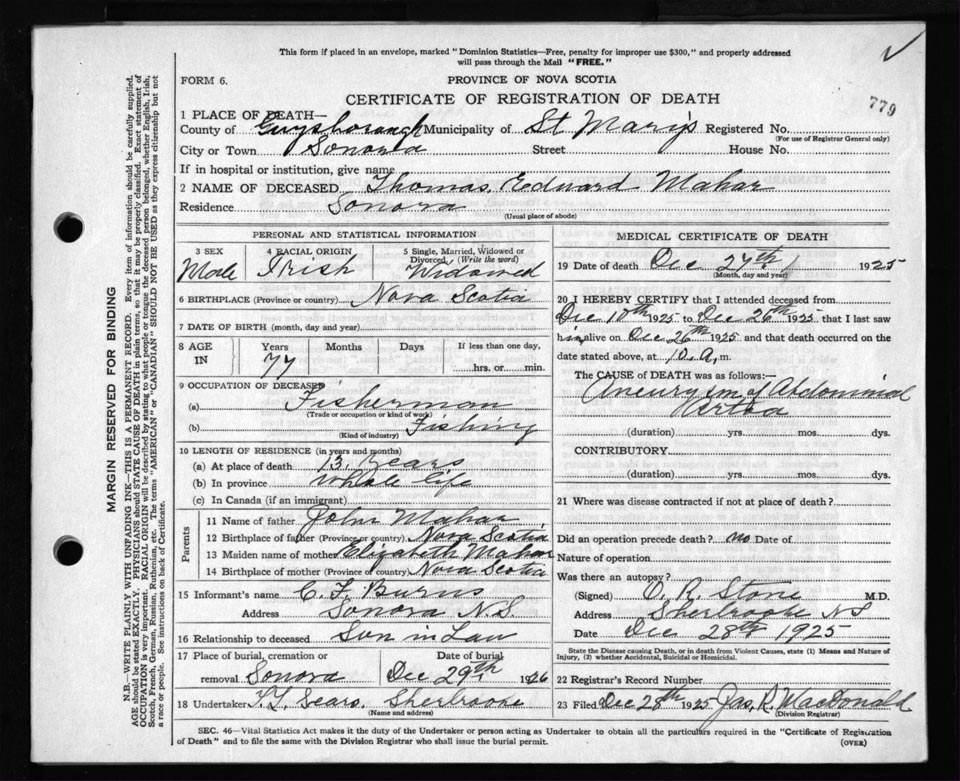 This form if placed in an envelope, marked "Dominion Statistics—Free, penalty for improper use $300," and properly addressed
will pass through the Mail "FREE."
FORM 6.
PROVINCE OF NOVA SCOTIA
779
CERTIFICATE OF REGISTRATION OF DEATH
1 PLACE OF DEATH—
County of Guysborough Municipality of St Mary's Registered No.
(For use of Registrar General only)
City or Town Sonora Street House No.
If in hospital or institution, give name
2 NAME OF DECEASED Thomas Edward Mahar
Residence Sonora
(Usual place of abode)
PERSONAL AND STATISTICAL INFORMATION
3 SEX Male
4 RACIAL ORIGIN Irish
5 Single, Married, Widowed or
Divorced (Write the word)
Widowed
6 BIRTHPLACE (Province or country) Nova Scotia
7 DATE OF BIRTH (month, day and year)
8 AGE
IN
Years Months Days If less than one day,
77
hrs. or min.
9 OCCUPATION OF DECEASED
(a) Fisherman
(Trade or occupation or kind of work)
(b) Fishing
(Kind of industry)
10 LENGTH OF RESIDENCE (in years and months)
(a) At place of death 13 Years
(b) In province whole life
(c) In Canada (if an immigrant)
Parents
11 Name of father John Mahar
12 Birthplace of father (Province or country) Nova Scotia
13 Maiden name of mother Elizabeth Mahar
14 Birthplace of mother (Province or country) Nova Scotia
15 Informant's name C. F. Burns
Address Sonora N.S
16 Relationship to deceased Son in Law
17 Place of burial, cremation or Date of burial
removal Sonora Dec 29th 1926
18 Undertaker Sears Sherbrooke
(Name and address)
MEDICAL CERTIFICATE OF DEATH
19 Date of death Dec 27th 1925
(Month, day and year)
20 I HEREBY CERTIFY that I attended deceased from
Dec 10th 1925 to Dec 26th 1925 that I last saw
him alive on Dec 26th 1925 and that death occurred on the
date stated above, at 10 a, m.
The CAUSE of DEATH was as follows:—
Aneurysm of Abdominal
Arta
(duration) yrs. mos. dys.
CONTRIBUTORY
(duration) yrs. mos. dys.
21 Where was disease contracted if not at place of death?
Did an operation precede death? no Date of
Nature of operation
Was there an autopsy?
(Signed) R. Stone M.D.
Address Sherbrooke NS
Date Dec 28th 1925
State the Disease causing Death, or in death from Violent Causes, state (1) Means and Nature of
Injury, (2) whether Accidental, Suicidal or Homicidal.
22 Registrar's Record Number
23 Filed Dec 28th 1925 Jas. R. MacDonald
(Division Registrar)
SEC. 46—Vital Statistics Act makes it the duty of the Undertaker or person acting as Undertaker to obtain all the particulars required in the "Certificate of Registration
of Death" and to file the same with the Division Registrar who shall issue the burial permit.
(OVER)
MARGIN RESERVED FOR BINDING
N.B.—WRITE PLAINLY WITH UNFADING INK—THIS IS A PERMANENT RECORD. Every item of information should be carefully supplied.
AGE should be stated EXACTLY. PHYSICIANS should STATE CAUSE OF DEATH in plain terms, so that it may be properly classified. Exact statement of
OCCUPATION is very important. RACIAL ORIGIN will be described by stating to what people or tongue the deceased person belonged, whether English, Irish,
Scotch, French, German, Russian, Ruthenian, etc. The terms "AMERICAN" or "CANADIAN" SHOULD NOT BE USED as they express citizenship but not
a race or people. See instructions on back of Certificate.